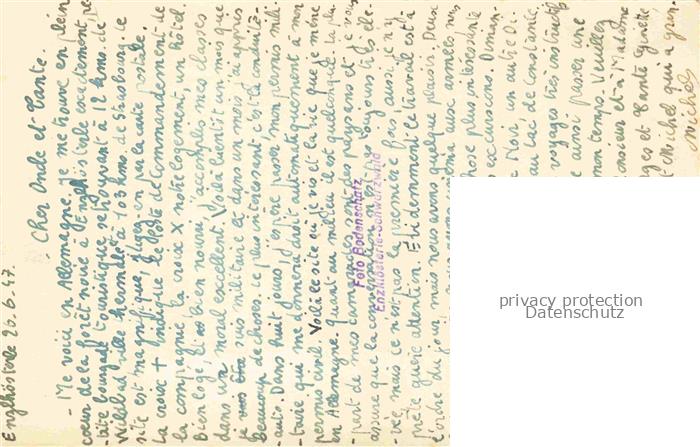 Enzklösterle 26.6.47.
Cher Oncle et Tante.
- Me voici en Allemagne. Je me trouve en plein
coeur de la forêt noire à Enzklösterle exactement, pe-
tite bourgade touristique se trouvant à 12 kms. de
Wildbad ville thermale à 103 kms. de Strasbourg. Le
site est magnifique, jugez-en par la carte postale.
La croix + indique le Poste de Commandement de
la compagnie la croix X notre logement, un hôtel.
Bien logé, bien nourri, j'accomplis mes classes
dans un moral excellent. Voilà bientôt un mois que
je suis militaire et dans un mois j'ai appris
beaucoup de choses. Le plus intéressant: c'est la conduite
auto. Dans huit jours j'espère passer mon permis mili-
taire qui me donnera droit automatiquement à mon
permis civil. Voilà le site où je vis et la vie que je mène
en Allemagne. Quant au milieu il est quelconque. La plu-
part de mes camarades sont des paysans et je vous
assure que la conversation n'est pas toujours très éle-
vée, mais ce n'est pas la première fois aussi, je n'y
prête guère attention. Evidemment le travail est à
l'ordre du jour, mais nous avons quelque plaisir. Deux
fois aux armées,
chose plus intéressante
excursions. Diman-
Noir, un autre Di-
au lac de Constance
voyages très instructifs
ainsi passer une
mon temps. Veuillez
Monsieur et à Madame
et Tante Ginette,
Michel qui a
Michel
Foto Bodenschatz
Enzklösterle-Schwarzwald
privacy protection
Datenschutz